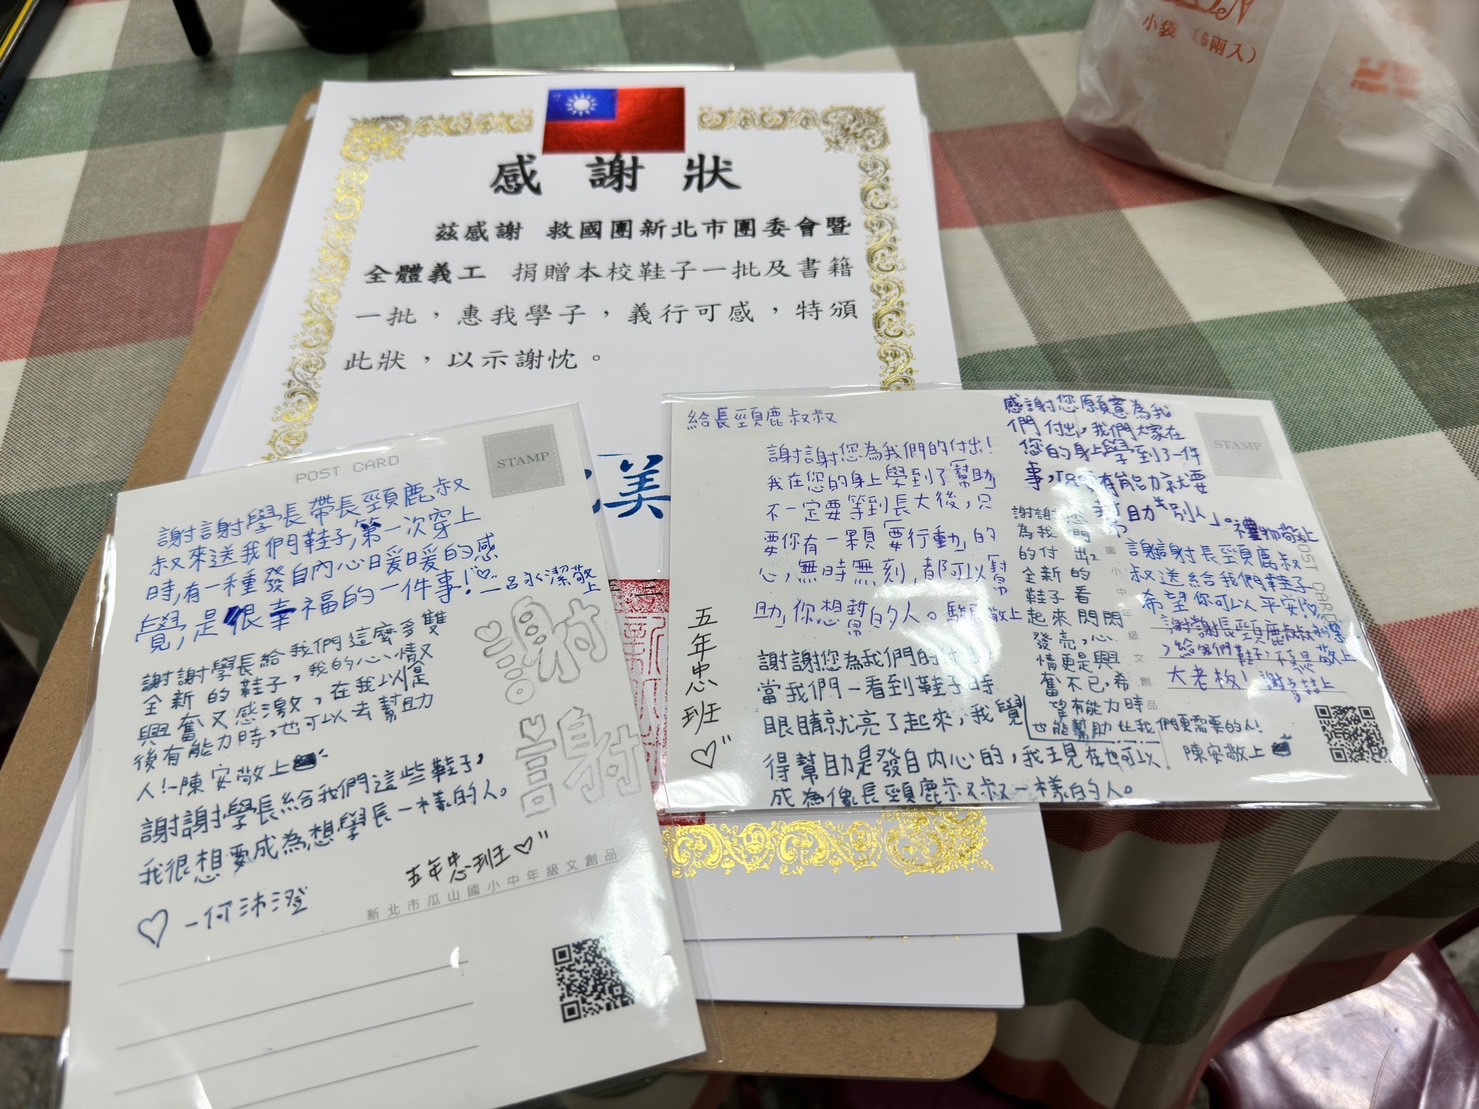 小袋（6兩入）
感謝狀
茲感謝 救國團新北市團委會暨
全體義工 捐贈本校鞋子一批及書籍
一批，惠我學子，義行可感，特頒
此狀，以示謝忱。
美
POST CARD
STAMP
謝謝學長帶長頸鹿叔
叔來送我們鞋子,第一次穿上
時,有一種發自內心暖暖的感
覺,是很幸福的一件事!♡
謝謝學長給我們這麼多雙
全新的鞋子，我的心情又
興奮又感激，在我以後
後有能力時,也可以去幫助
人!-陳安敬上
謝謝學長給我們這些鞋子,
我很想要成為想學長一樣的人。
♡ -何沐澄
五年忠班♡"
謝謝
新北市瓜山國小中年級文創品
給長頸鹿叔叔
謝謝您為我們的付出!
我在您的身上學到了幫助
不一定要等到長大後,只
要你有一顆「要行動」的
心,無時無刻,都可以幫
助,你想幫的人。
敬上
謝謝您為我們的付出
當我們一看到鞋子時
眼睛就亮了起來,我覺
得幫助是發自內心的,我現在也可以
成為像長頸鹿叔叔一樣的人。
五年忠班♡"
感謝您願意為我
們付出,我們大家在
您的身上學到了一件
事,「只要有能力就要
幫助別人」。
敬上
STAMP
謝謝您
為我們
的付出,
全新的
鞋子看
起來閃閃
發亮,心
情更是興
奮不已,希
望有能力時
也能幫助比我們更需要的人!
陳安敬上
謝謝長頸鹿叔
叔送給我們鞋子
希望你可以平安
謝謝長頸鹿叔叔
敬上
大老板!謝
POST CARD